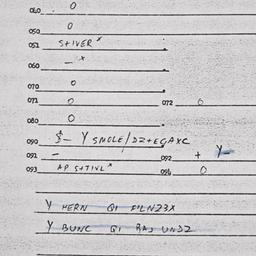 040 0
050 0
051 S+IVER x
060 – x
070 0
071 0 072 0
080 0
090 Y SMGLE/DZ+EGAXC
091 – 092 + Y–
093 AP S+TIVL x 094 0
Y HERN QI PILNZ3X
Y BUNC QI RAJ UNDZ